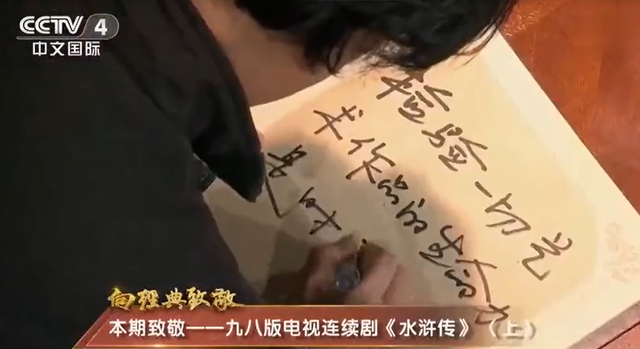 CCTV 4
中文国际
检验一切艺
术作品的生命力
是年
向经典致敬
本期致敬——九八版电视连续剧《水浒传》(上)